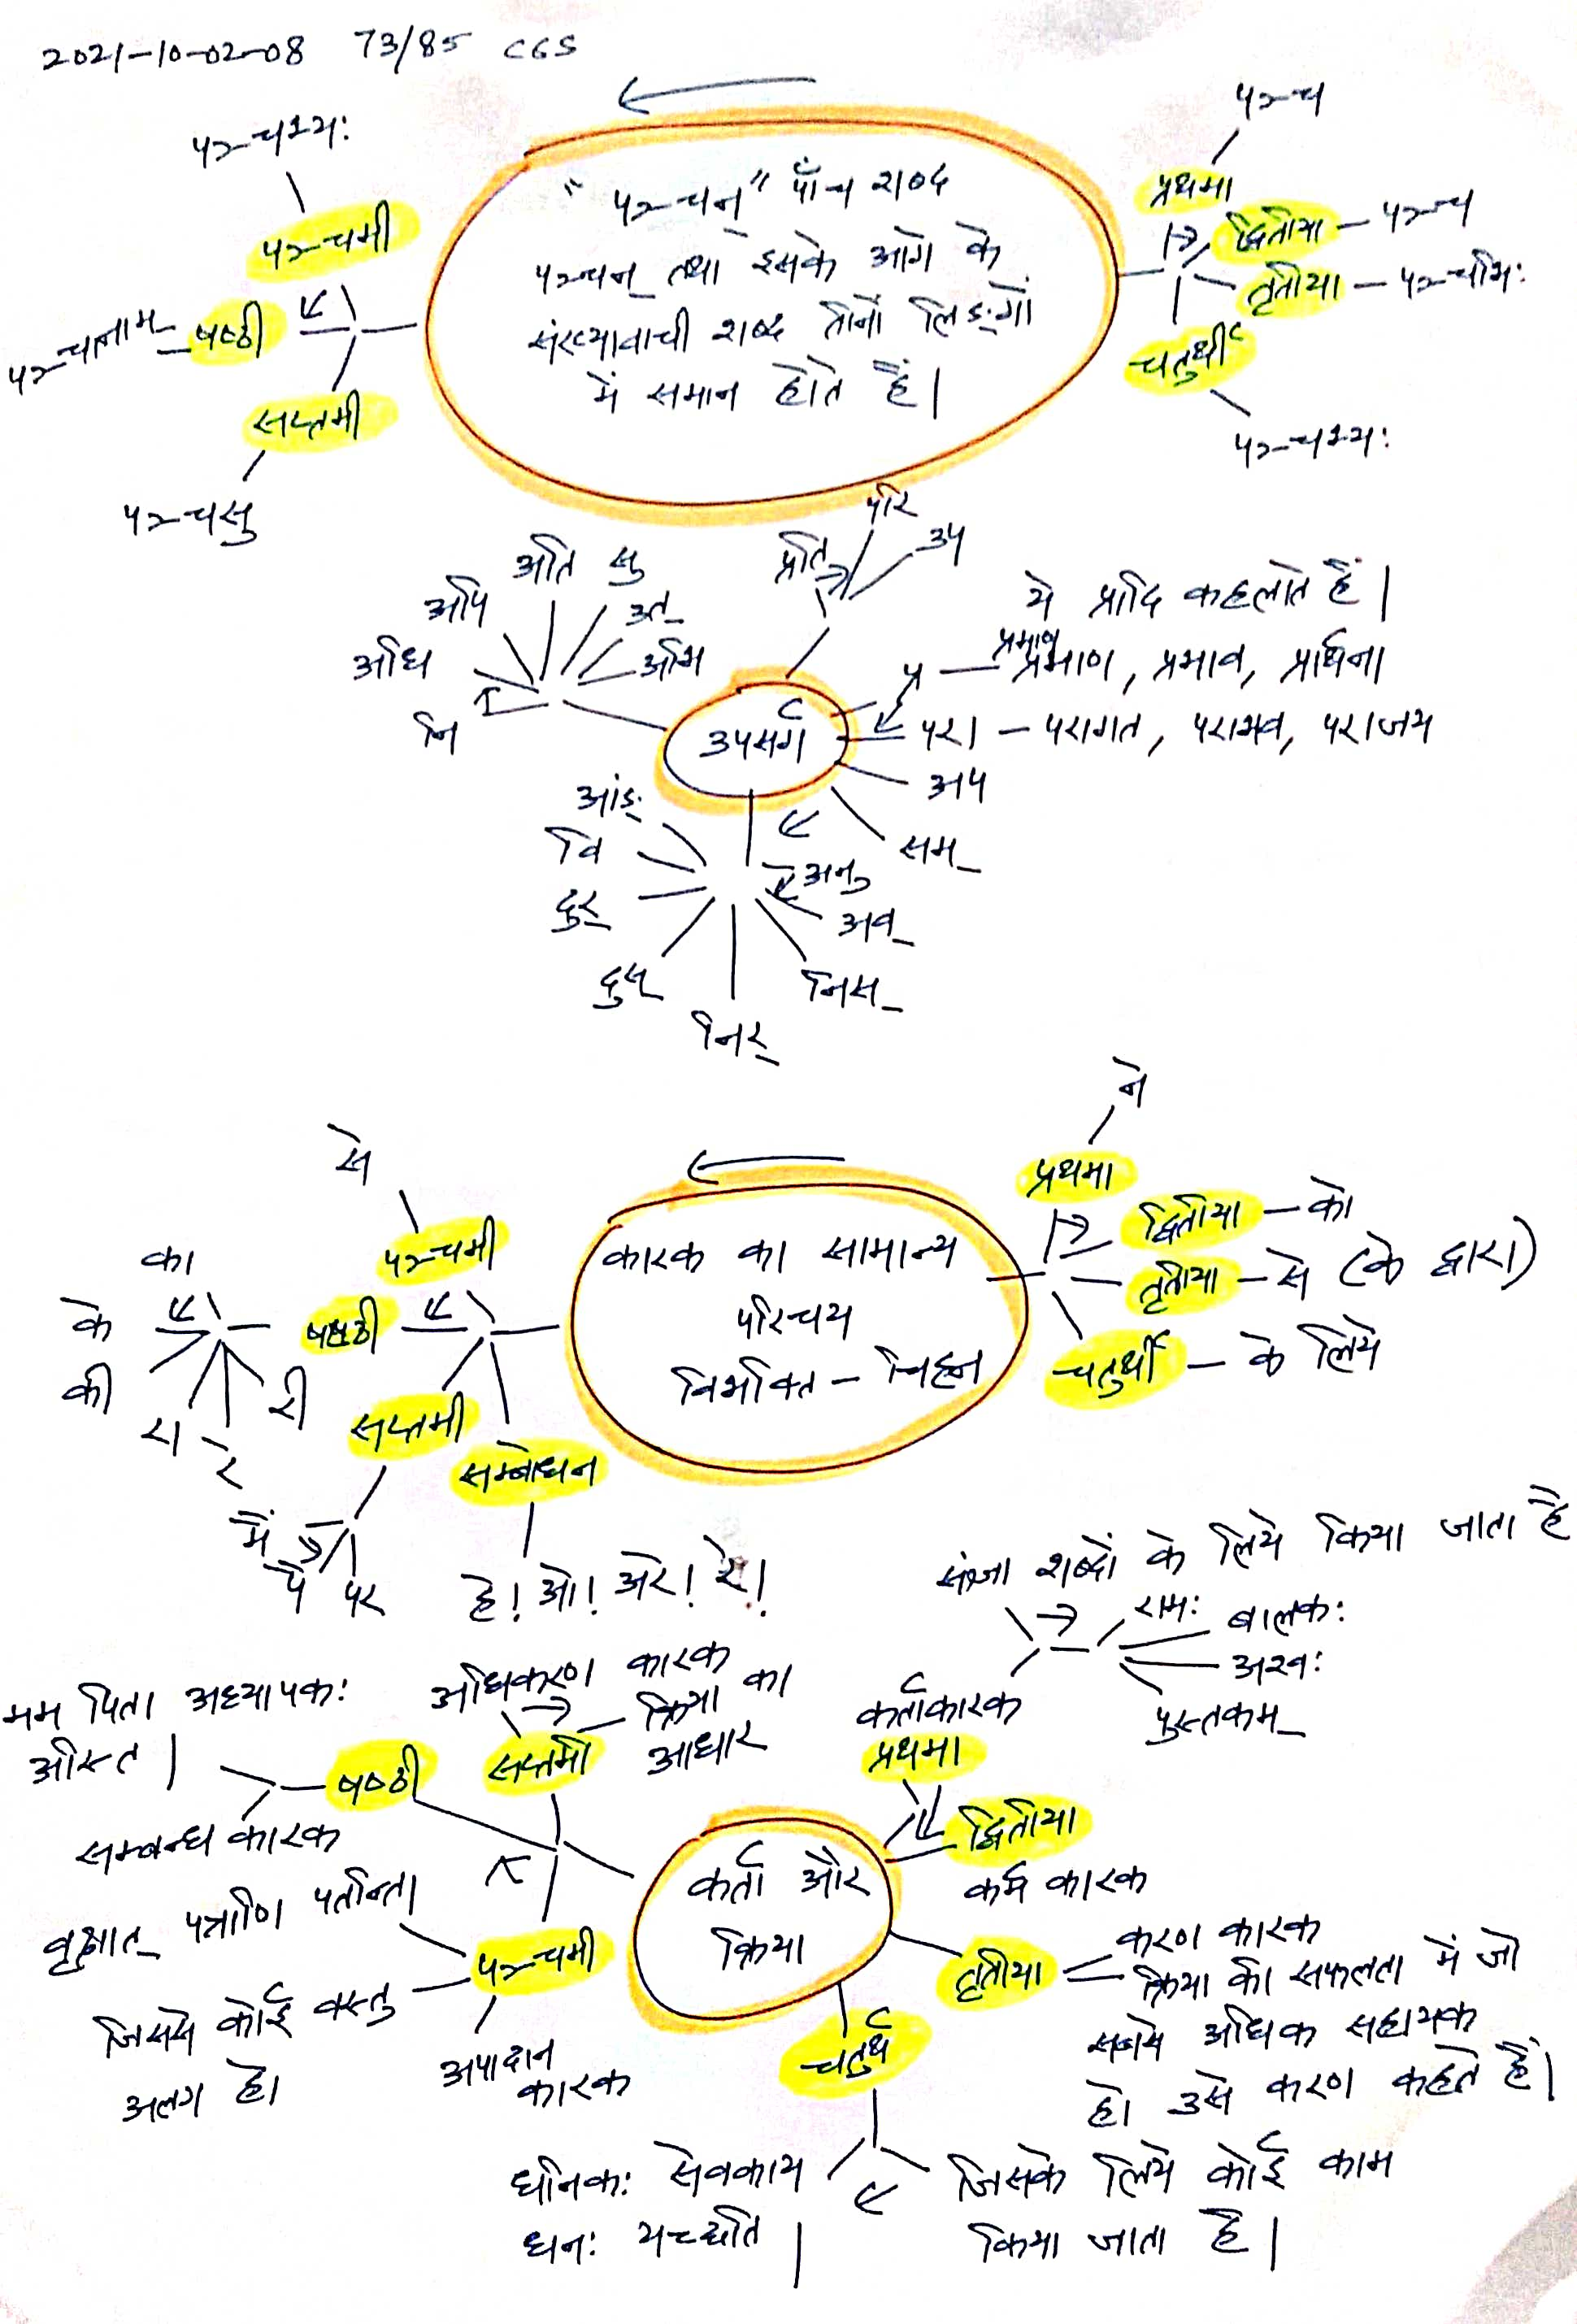 2021-10-02-08 73/85 CGS
पञ्च
प्रथमा
द्वितीया - पञ्च
तृतीया - पञ्चभि:
चतुर्थी
पञ्चभ्य:
"पञ्चन्" पाँच शब्द
पञ्चन् तथा इसके आगे के
संख्यावाची शब्द तीनों लिङ्गों
में समान होते हैं।
पञ्चभ्य:
पञ्चमी
पञ्चानाम् - षष्ठी
सप्तमी
पञ्चसु
उपसर्ग
ये प्रादि कहलाते हैं।
प्रमाण
प्र - प्रमाण, प्रभाव, प्रार्थना
परा - परागत, पराभव, पराजय
अप
सम्
अनु
अव
निस्
निर्
दुस्
दुर्
वि
आङ्
नि
अधि
अपि
अति
सु
उत्
अभि
प्रति
परि
उप
कारक का सामान्य
परिचय
विभक्ति - चिह्न
ने
प्रथमा
द्वितीया - को
तृतीया - से (के द्वारा)
चतुर्थी - के लिये
से
पञ्चमी
षष्ठी
का
के
की
रा
रे
री
सप्तमी
में
पे
पर
सम्बोधन
हे! ओ! अरे! रे!
कर्ता और
क्रिया
संज्ञा शब्दों के लिये किया जाता है
राम:
बालक:
अश्व:
पुस्तकम्
कर्ताकारक
प्रथमा
द्वितीया
कर्म कारक
तृतीया
करण कारक
क्रिया की सफलता में जो
सबसे अधिक सहायक
हो उसे करण कहते हैं।
चतुर्थ
जिसके लिये कोई काम
किया जाता है।
धनिक: सेवकाय
धन: यच्छति।
पञ्चमी
अपादान
कारक
जिससे कोई वस्तु
अलग हो
वृक्षात् पत्राणि पतन्ति
षष्ठी
सम्बन्ध कारक
मम पिता अध्यापक:
अस्ति।
सप्तमी
अधिकरण कारक
क्रिया का
आधार